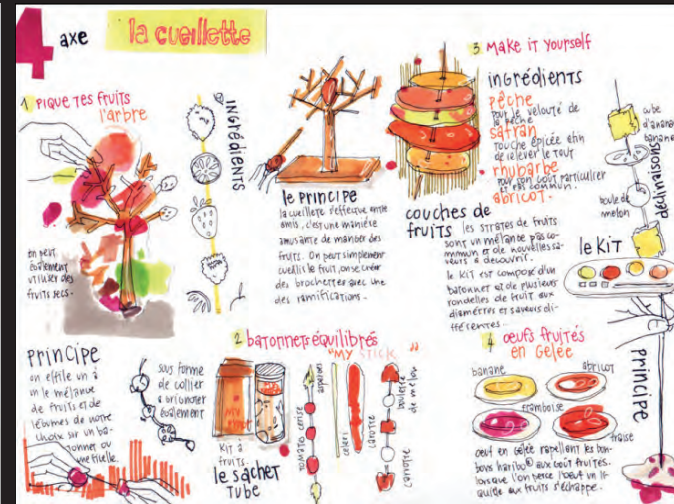 4 axe
la cueillette
1 PIQUE TES FRUITS
l'arbre
INGRÉDIENTS
on peut
également
utiliser des
fruits secs.
le PRINCIPE
la cueillette s'effectue entre
amis, c'est une manière
amusante de manger des
fruits. On peut simplement
cueillir le fruit, on se créer
des brochettes avec une
des ramifications.
3 Make it Yourself
ingrédients
pêche
pour le velouté de
la pêche
safran
touche épicée afin
de relever le tout
rhubarbe
pour son goût particulier
et pas commun.
abricot.
couches de
fruits
les strates de fruits
sont un mélange pas co-
mmun et de nouvelles sa-
veurs à découvrir.
le kit est composé d'un
batonnet et de plusieurs
rondelles de fruit aux
diamètres et saveurs di-
fférentes.
cube
d'ananas
banane
déclinaisons
boule de
melon
le KIT
PRINCIPE
PRINCIPE
on effile un à
un le mélange
de fruits et de
légumes de notre
choix sur un ba-
tonnet ou
une ficelle.
sous forme
de collier
à grignoter
également
2 batonnets équilibrés
"MY STICK"
kit à
fruits.
le sachet
TUBE
tomate cerise
céleri
carotte
boulette
de melon
carotte
4 œufs fruités
en Gelée
banane
abricot
framboise
fraise
œuf en gelée rappelant les bon-
bons haribo® aux goût fruités.
lorsque l'on perce l'œuf un li-
quide aux fruits s'échappe.